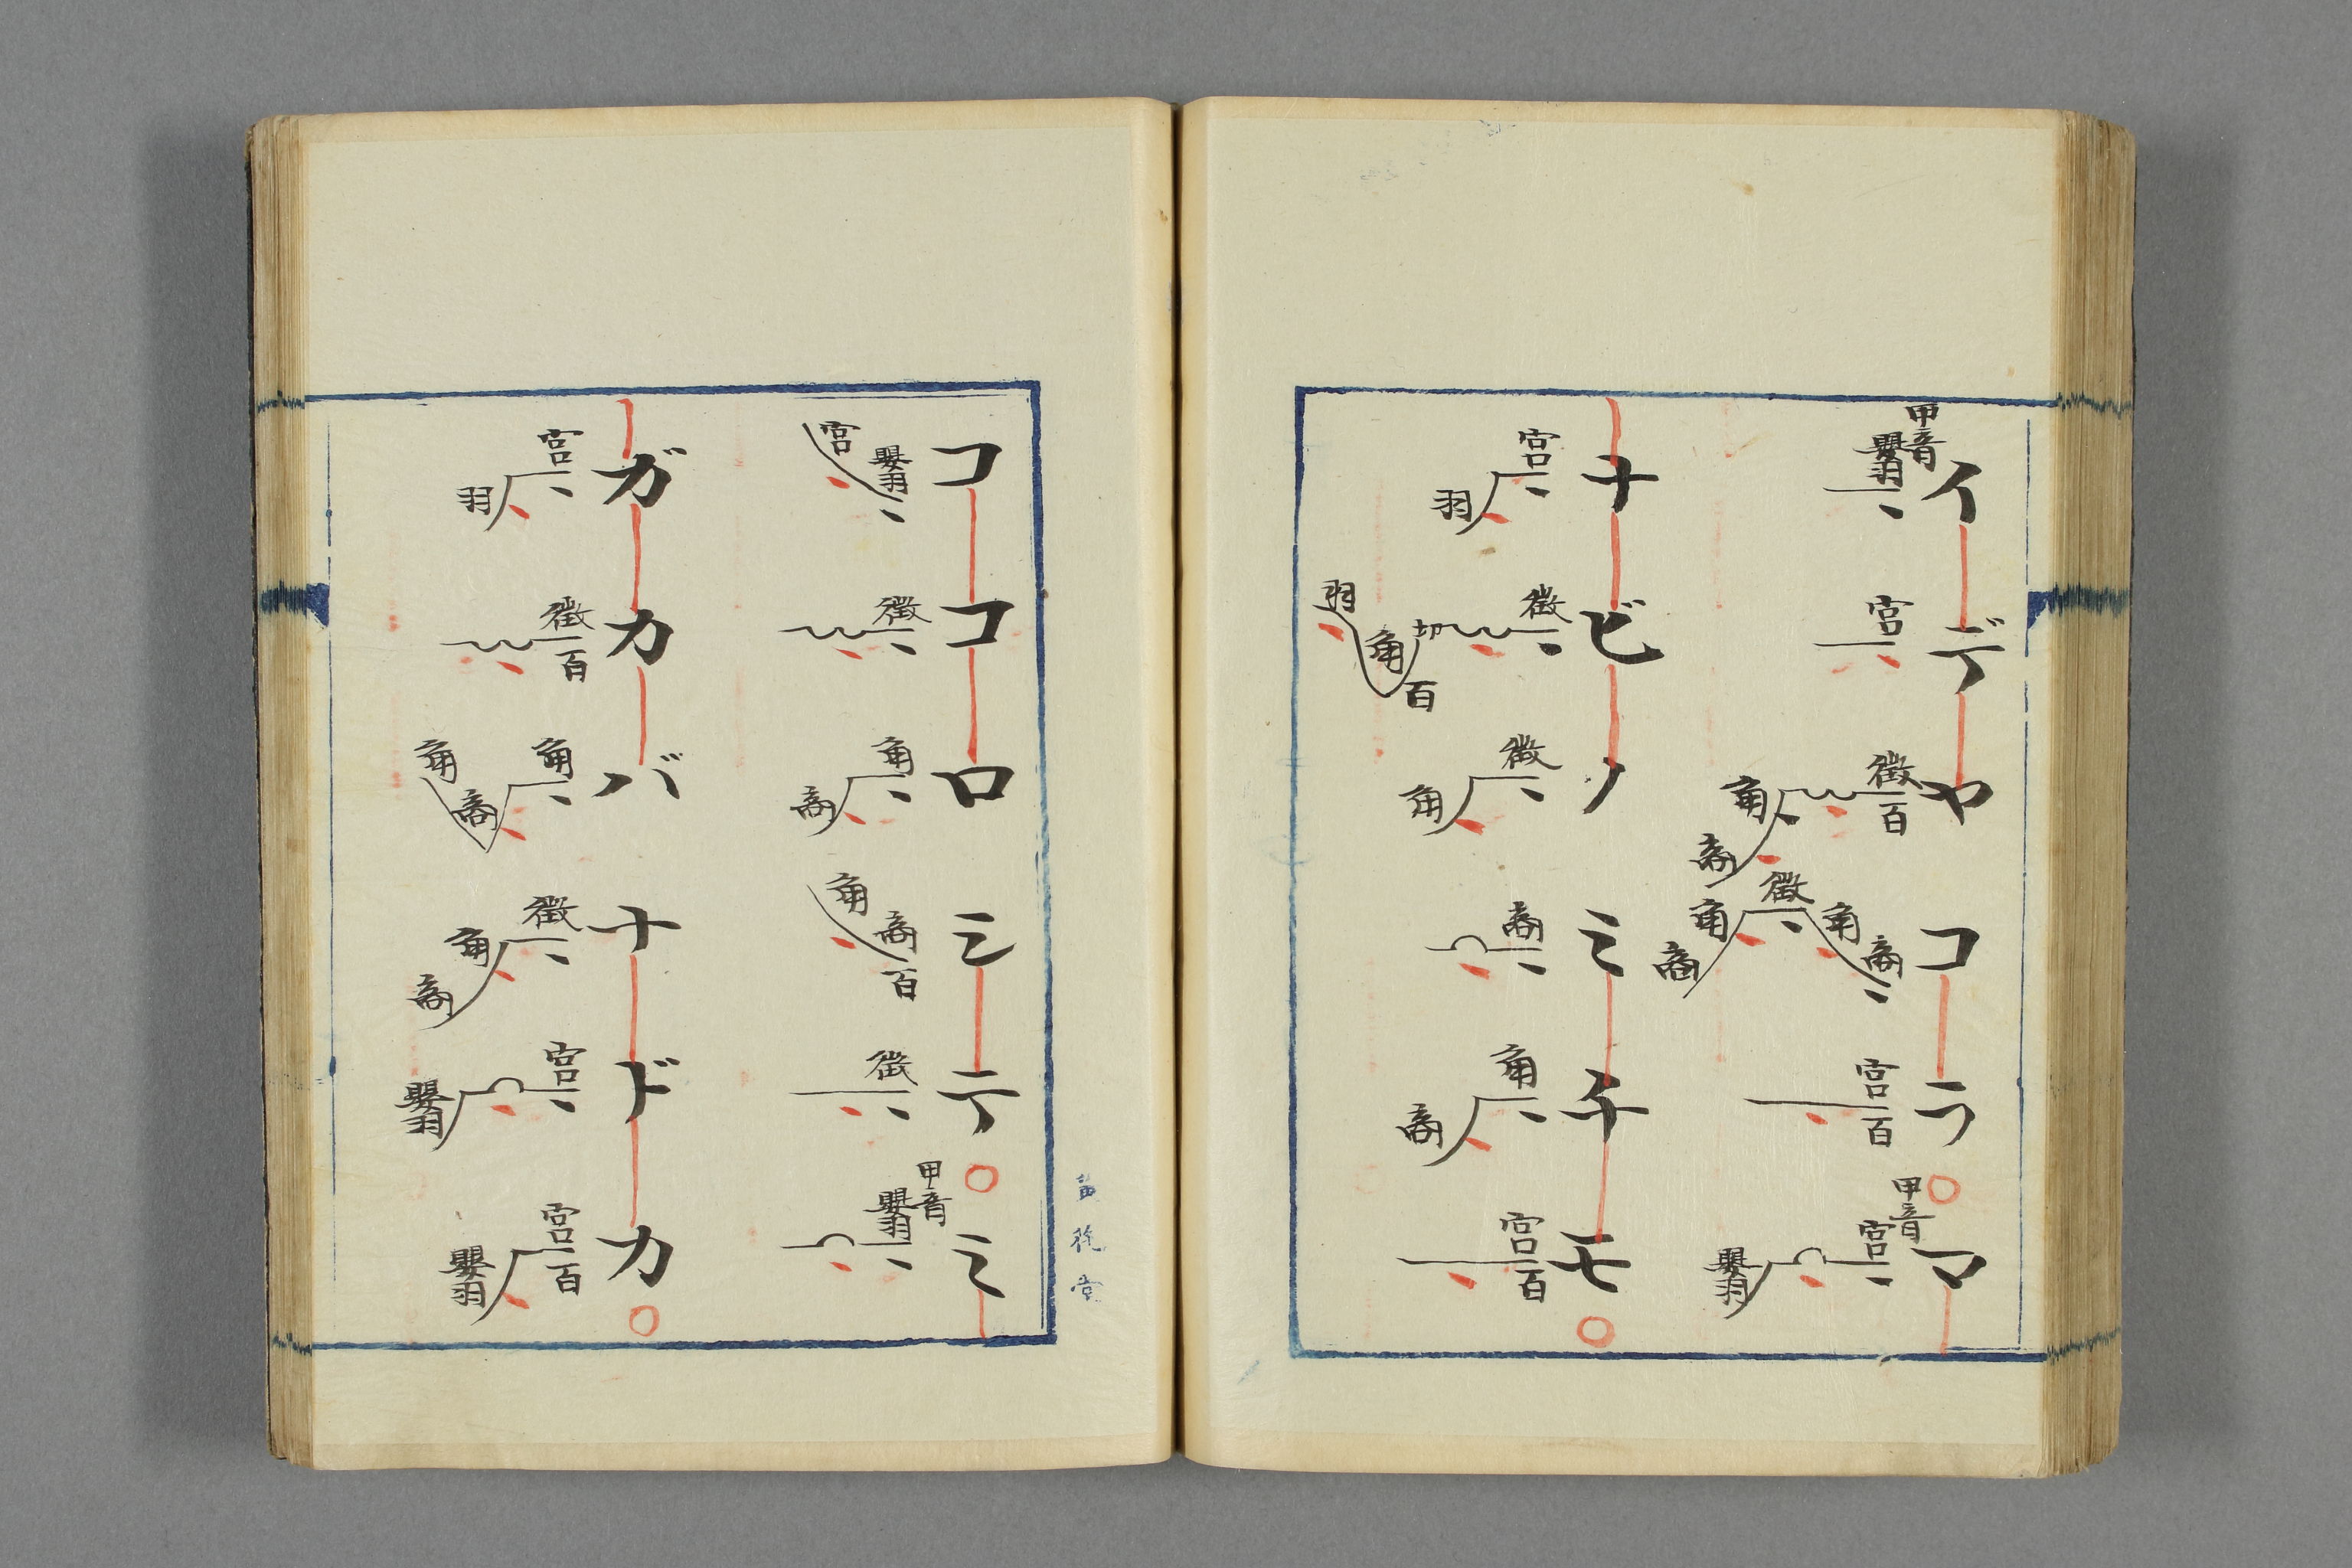 イデヤコラ○マ
甲音 嬰羽 宮 徴 百 角 商 商 角 徴 角 商 宮 百 甲音 宮 嬰羽
ナビノミチモ○
宮 羽 徴 切 角 百 羽 徴 角 商 角 商 宮 百
ココロミテ○ミ
嬰羽 宮 徴 角 商 商 角 百 徴 甲音 嬰羽
ガカバナドカ○
宮 羽 徴 百 角 商 角 徴 角 商 宮 嬰羽 宮 百 嬰羽